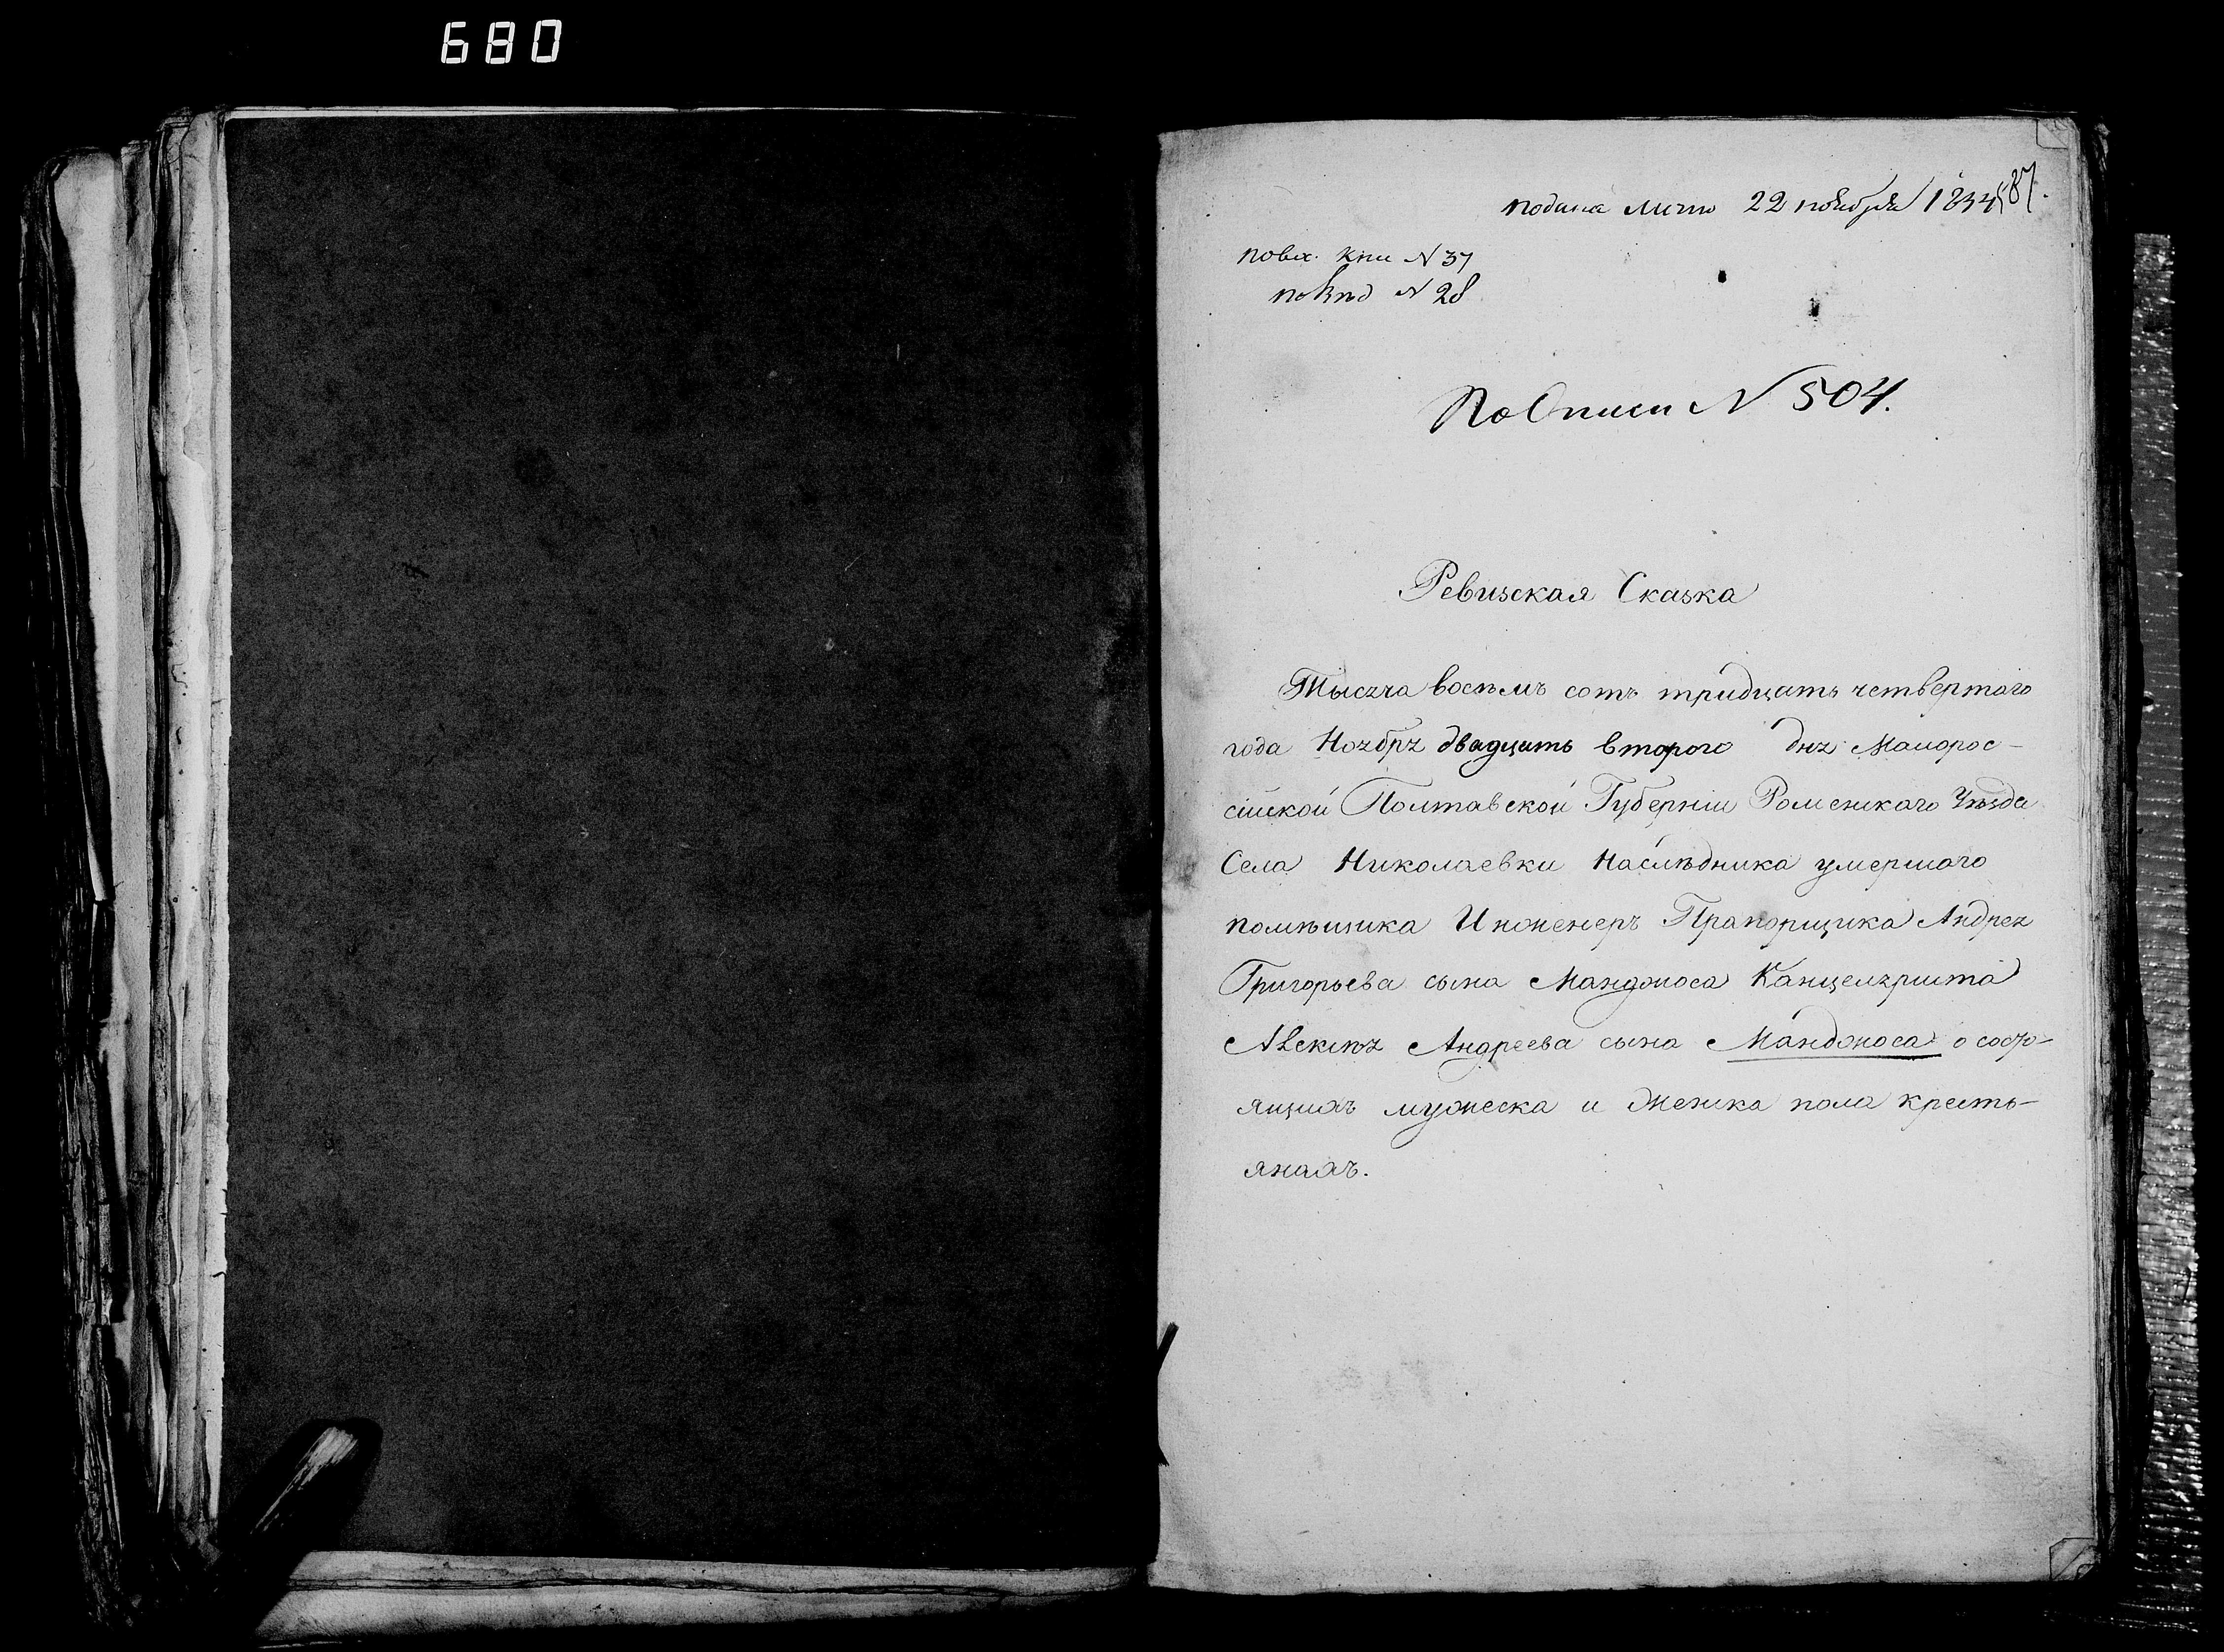 680
подана лично 22 ноября 1834
587.
по вх. кни N 37
N 28
По Описи N 504.
Ревизская Сказка
Тысяча восемь сотъ тридцать четвертаго
года Ноября двадцать второго дня Малорос-
сійской Полтавской Губерніи Роменскаго Уѣзда
Села Николаевки Наслѣдника умершаго
помѣщика Инженеръ Прапорщика Андрея
Григорьева сына Манджоса Канцеляриста
Алексѣя Андреева сына Манджоса о состо-
ящихъ мужеска и женска пола кресть-
янахъ.